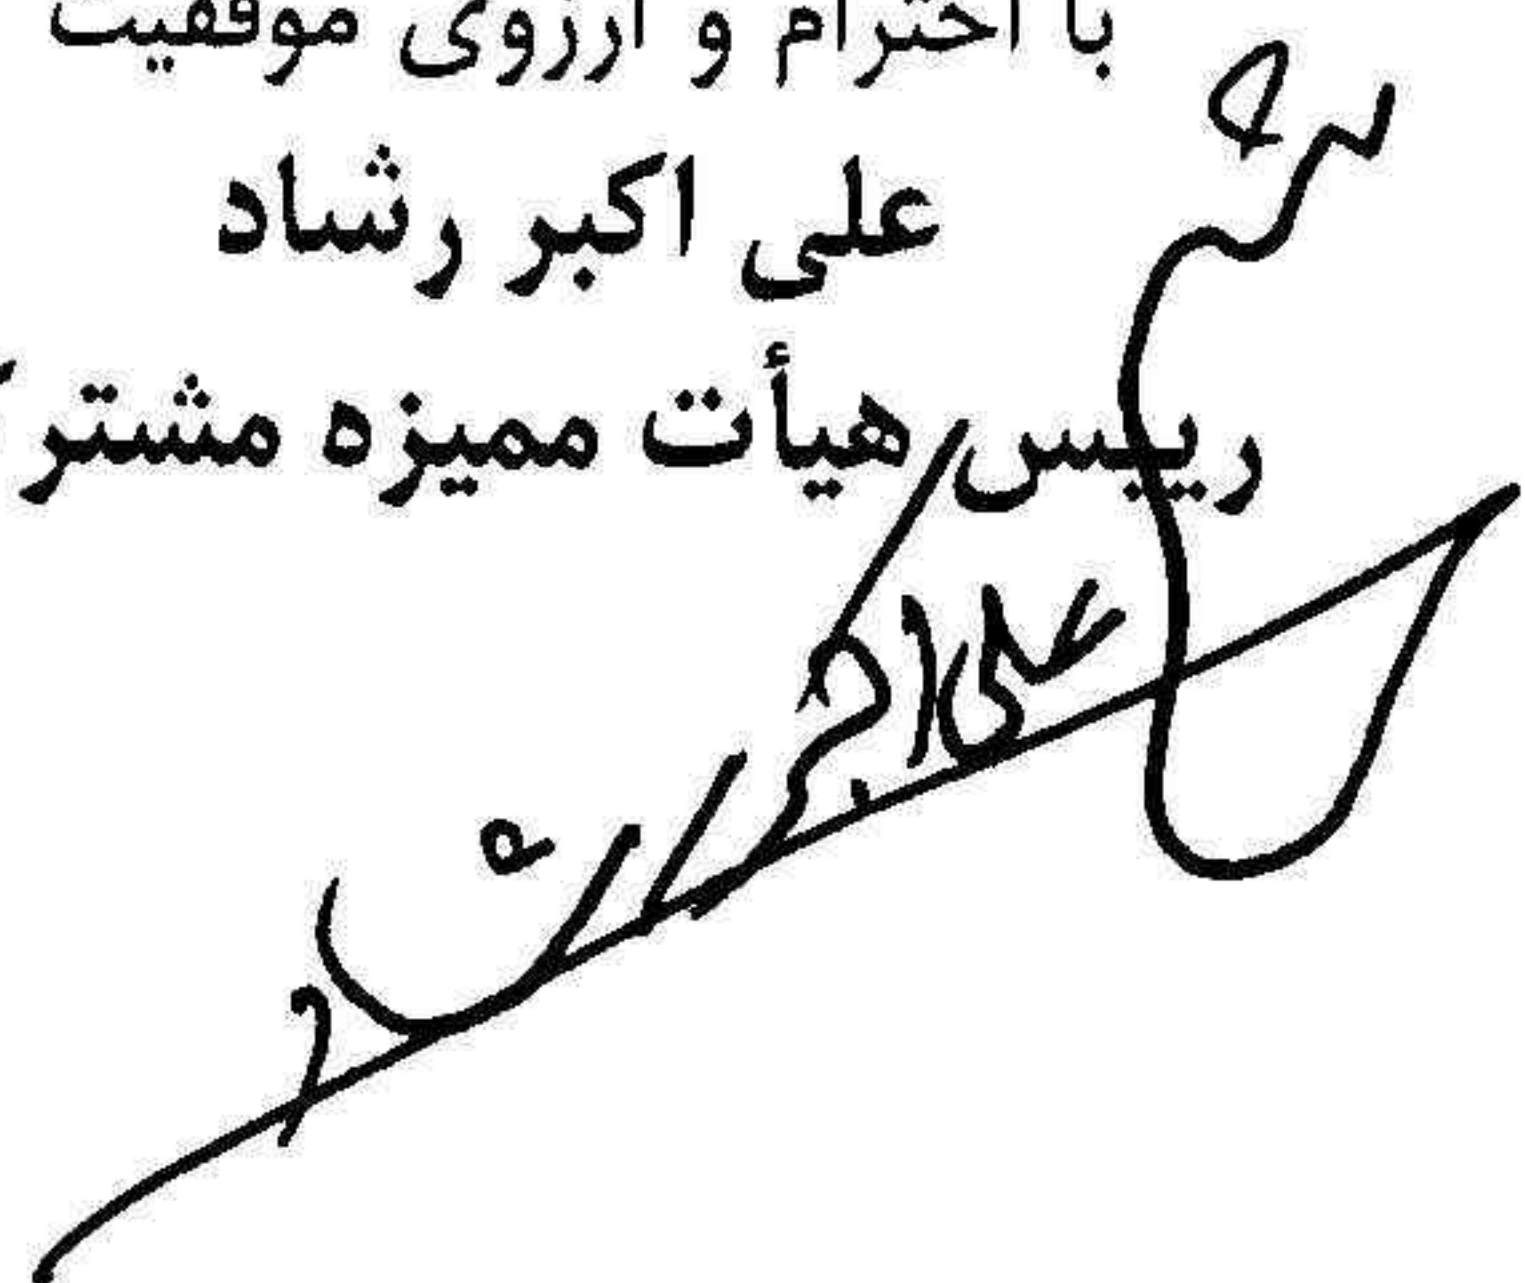 با احترام و آرزوی موفقیت
علی اکبر رشاد
رییس هیأت ممیزه مشتر
علی اکبر رشاد